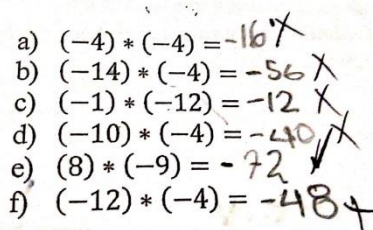 a) (−4) * (−4) = -16 X
b) (−14) * (−4) = -56 X
c) (−1) * (−12) = -12 X
d) (−10) * (−4) = -40 X
e) (8) * (−9) = -72 ✓
f) (−12) * (−4) = -48 X